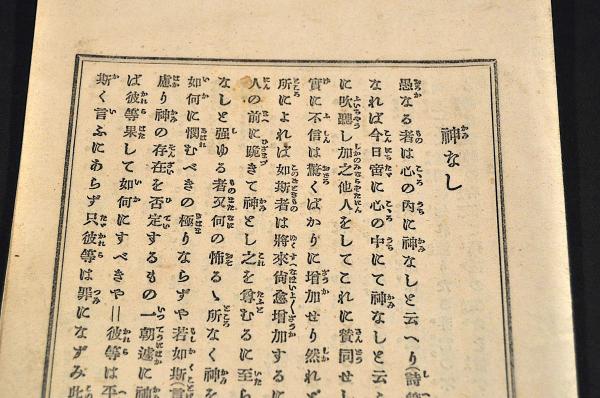 神なし
愚なる者は心の内に神なしと云へり(詩篇
なれば今日啻に心の中にて神なしと云ふ
に吹聽し加之他人をしてこれに賛同せし
實に不信は驚くばかりに増加せり然れど
所によれば如斯者は將來尙愈增加するに
人の前に跪きて神とし之を尊むるに至ら
なしと强ゆる者又何の怖るゝ所なく神を
如何に憫むべきの極りならずや若如斯(言
慮り神の存在を否定するもの一朝遽に神
ば彼等果して如何にすべきや||彼等は平
斯く言ふにあらず只彼等は罪になずみ此